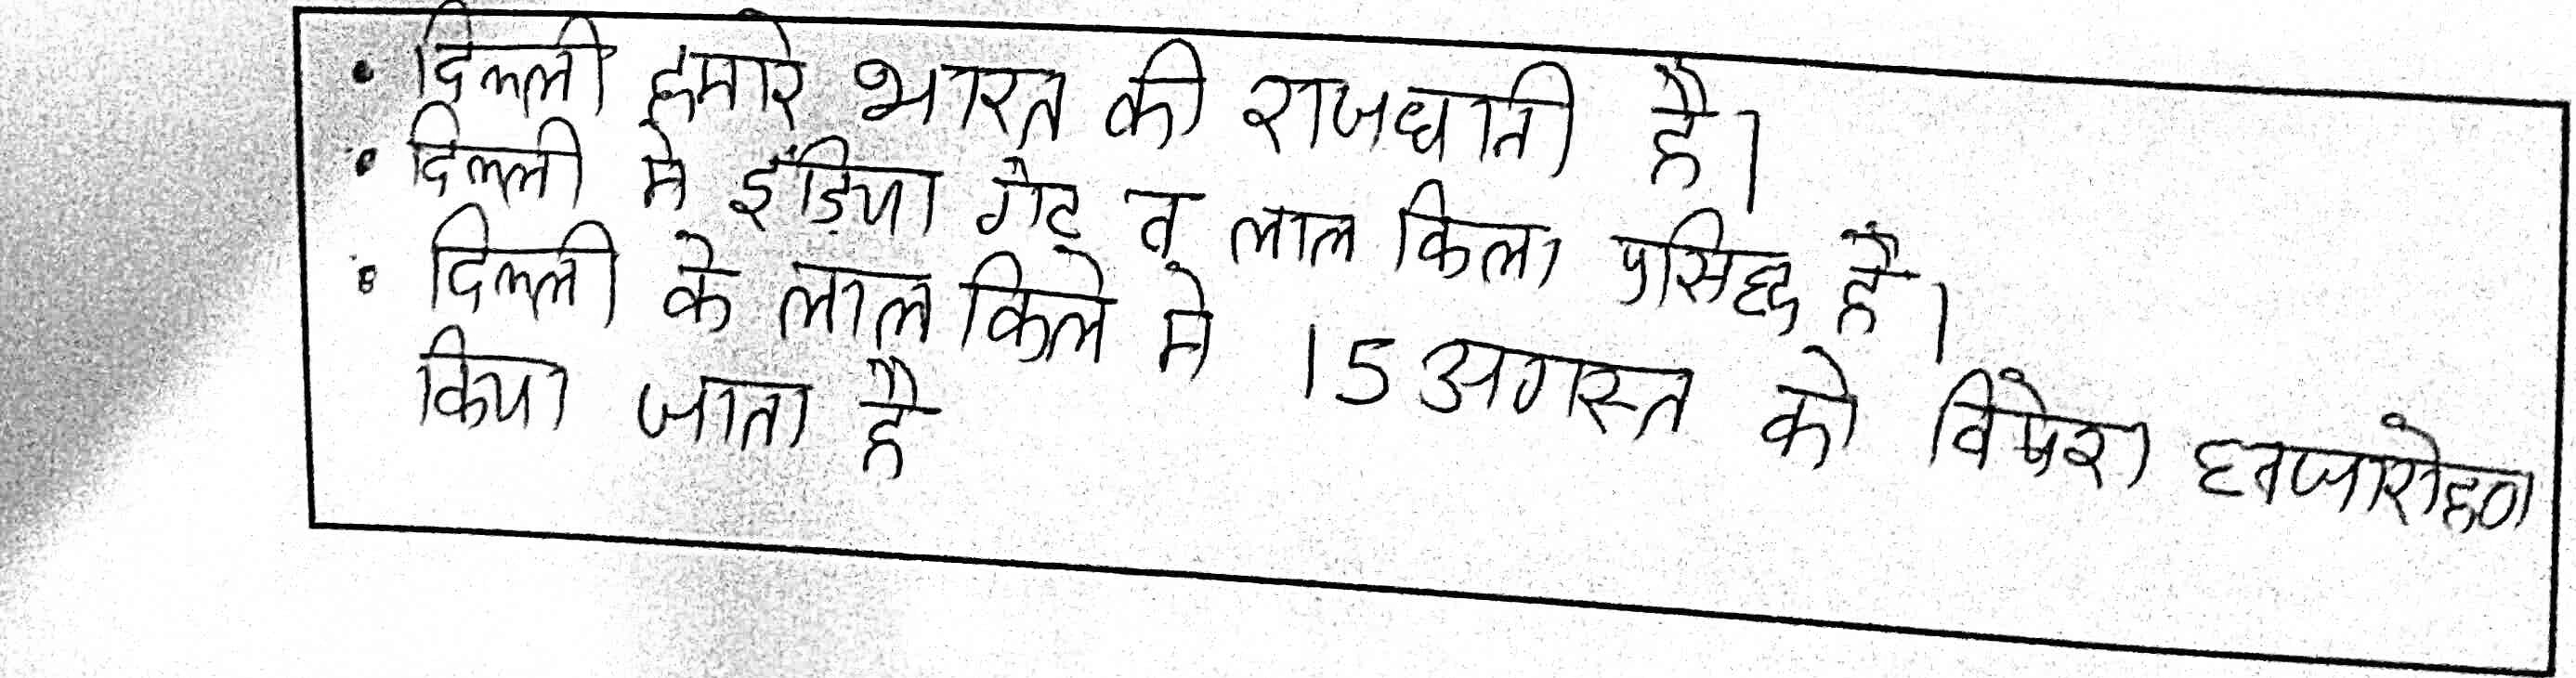 • दिल्ली हमारे भारत की राजधानी है।
• दिल्ली मे इंडिया गेट व लाल किला प्रसिद्ध है।
• दिल्ली के लाल किले मे 15 अगस्त को विषेश ध्वजारोहण
किया जाता है